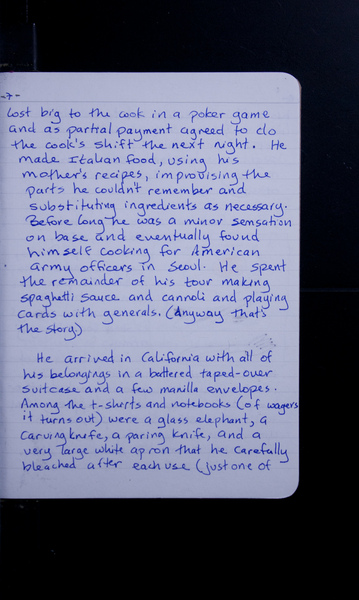 -7-
lost big to the cook in a poker game
and as partial payment agreed to do
the cook's shift the next night. He
made Italian food, using his
mother's recipes, improvising the
parts he couldn't remember and
substituting ingredients as necessary.
Before long he was a minor sensation
on base and eventually found
himself cooking for American
army officers in Seoul. He spent
the remainder of his tour making
spaghetti sauce and cannoli and playing
cards with generals. (Anyway that's
the story)
He arrived in California with all of
his belongings in a battered taped-over
suitcase and a few manilla envelopes.
Among the t-shirts and notebooks (of wagers
it turns out) were a glass elephant, a
carving knife, a paring knife, and a
very large white apron that he carefully
bleached after each use (just one of